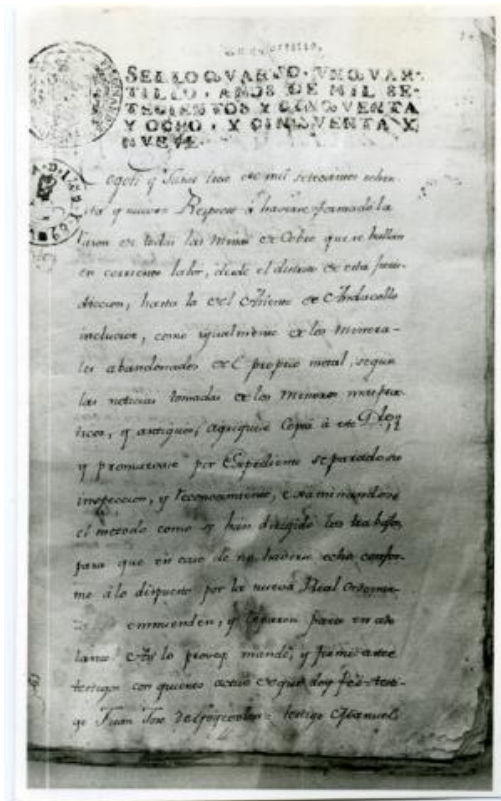 Un quartillo,
SELLO QVARTO, VN QVAR-
TILLO, AÑOS DE MIL SE-
TECIENTOS Y CINQVENTA
Y OCHO, Y CINQVENTA Y
NVEVE.
y Junio tres de mil setecientos ochen-
ta y nueve Respecto á haverse formado la
razon de todas las Minas de Cobre que se hallan
en corriente labor, desde el distrito de esta Juris-
diccion, hasta la del Asiento de Andacollo
inclusive, como igualmente de los Minera-
les abandonados del proprio metal, segun
las noticias tomadas de los Mineros mas prac-
ticos, y antiguos, agreguese Copia á este
y promuevase por Expediente separado su
inspeccion, y reconocimiento, examinandose
el metodo como se han dirigido los trabajos,
para que en caso de no haverse echo confor-
me á lo dispuesto por la nueva Real Ordenan-
enmienden, y reparen para en ade
lante. Asi lo provey, mandé, y firmé ante
testigos con quienes actuo de que doy feé = testi-
go Juan Jose = testigo Manuel